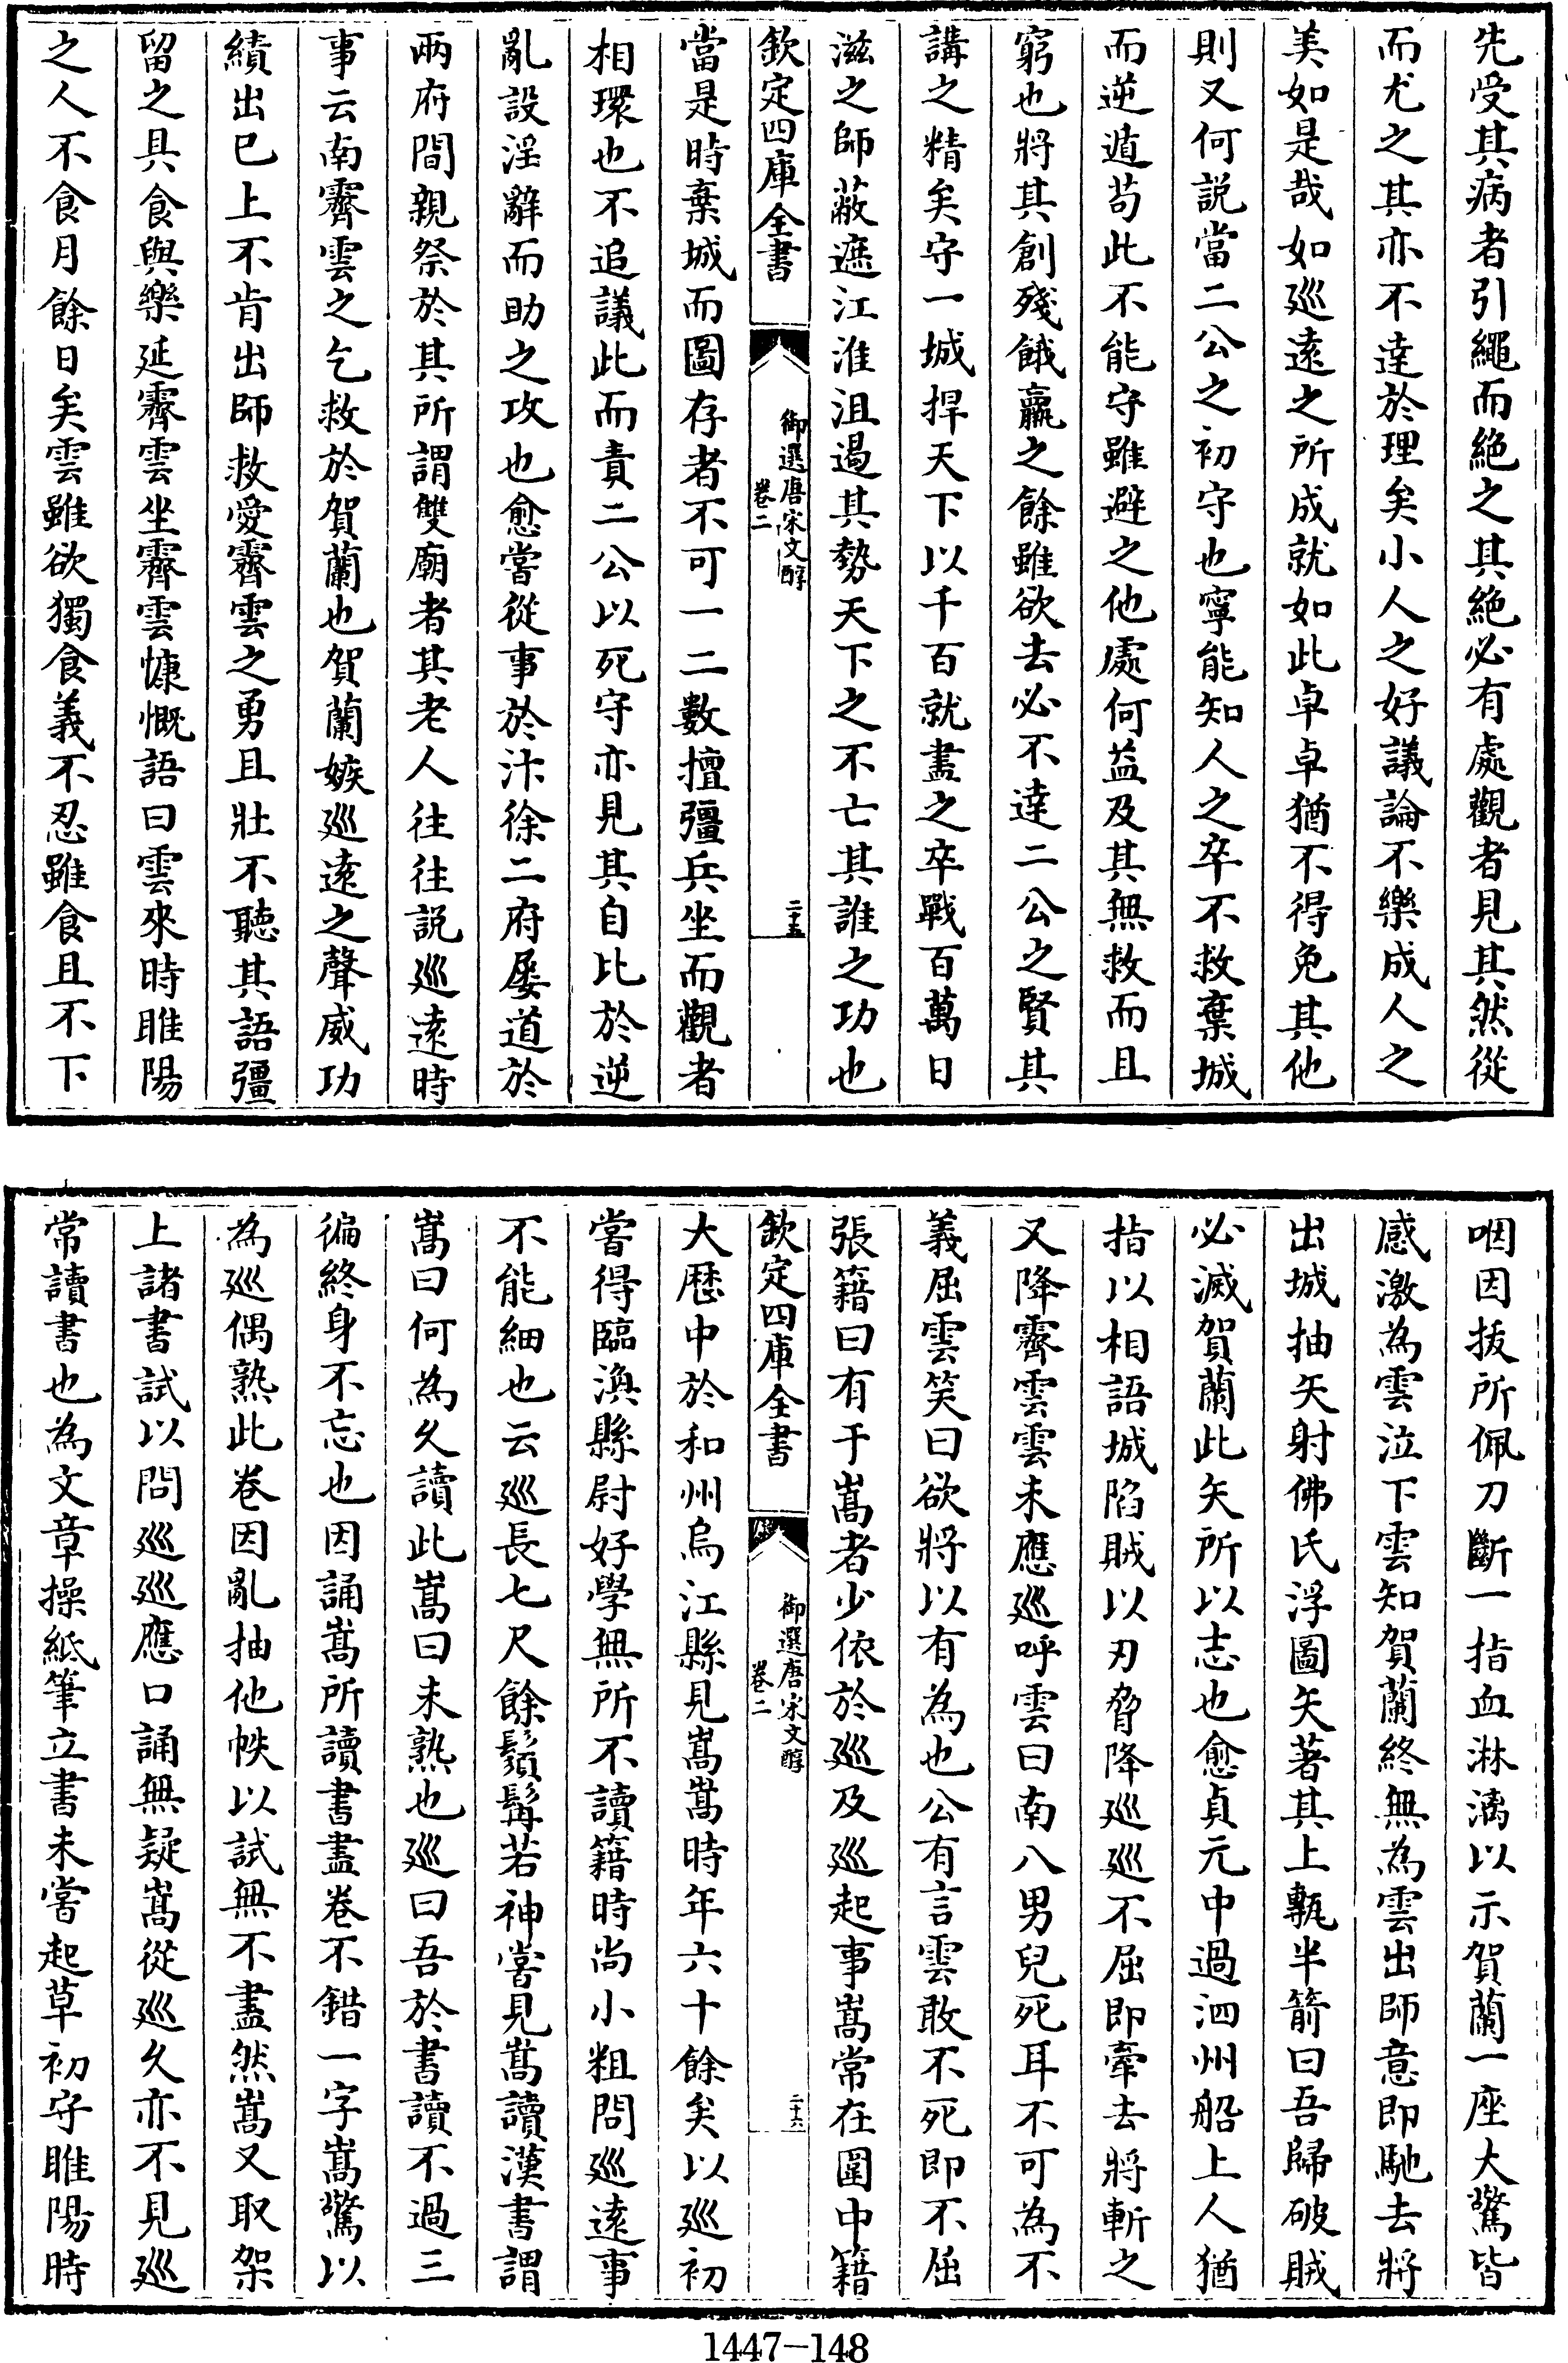 先受其病者引繩而絶之其絶必有處觀者見其然從
而尤之其亦不達於理矣小人之好議論不樂成人之
美如是哉如巡遠之所成就如此卓卓猶不得免其他
則又何説當二公之初守也寧能知人之卒不救棄城
而逆遁苟此不能守雖避之他處何益及其無救而且
窮也將其創殘餓羸之餘雖欲去必不達二公之賢其
講之精矣守一城捍天下以千百就盡之卒戰百萬日
滋之師蔽遮江淮沮遏其勢天下之不亡其誰之功也
欽定四庫全書
御選唐宋文醇
卷二
二十五
當是時棄城而圖存者不可一二數擅彊兵坐而觀者
相環也不追議此而責二公以死守亦見其自比於逆
亂設淫辭而助之攻也愈嘗從事於汴徐二府屢道於
兩府間親祭於其所謂雙廟者其老人往往説巡遠時
事云南霽雲之乞救於賀蘭也賀蘭嫉巡遠之聲威功
績出已上不肯出師救愛霽雲之勇且壯不聽其語彊
留之具食與樂延霽雲坐霽雲慷慨語曰雲來時睢陽
之人不食月餘日矣雲雖欲獨食義不忍雖食且不下
咽因拔所佩刀斷一指血淋漓以示賀蘭一座大驚皆
感激為雲泣下雲知賀蘭終無為雲出師意即馳去將
出城抽矢射佛氏浮圖矢著其上甎半箭曰吾歸破賊
必滅賀蘭此矢所以志也愈貞元中過泗州船上人猶
指以相語城陷賊以刃脅降巡巡不屈即牽去將斬之
又降霽雲雲未應巡呼雲曰南八男兒死耳不可為不
義屈雲笑曰欲將以有為也公有言雲敢不死即不屈
張籍曰有于嵩者少依於巡及巡起事嵩常在圍中籍
欽定四庫全書
御選唐宋文醇
卷二
二十六
大歷中於和州烏江縣見嵩嵩時年六十餘矣以巡初
嘗得臨渙縣尉好學無所不讀籍時尚小粗問巡遠事
不能細也云巡長七尺餘鬚髯若神嘗見嵩讀漢書謂
嵩曰何為久讀此嵩曰未熟也巡曰吾於書讀不過三
徧終身不忘也因誦嵩所讀書盡卷不錯一字嵩驚以
為巡偶熟此卷因亂抽他帙以試無不盡然嵩又取架
上諸書試以問巡巡應口誦無疑嵩從巡久亦不見巡
常讀書也為文章操紙筆立書未嘗起草初守睢陽時
1447-148